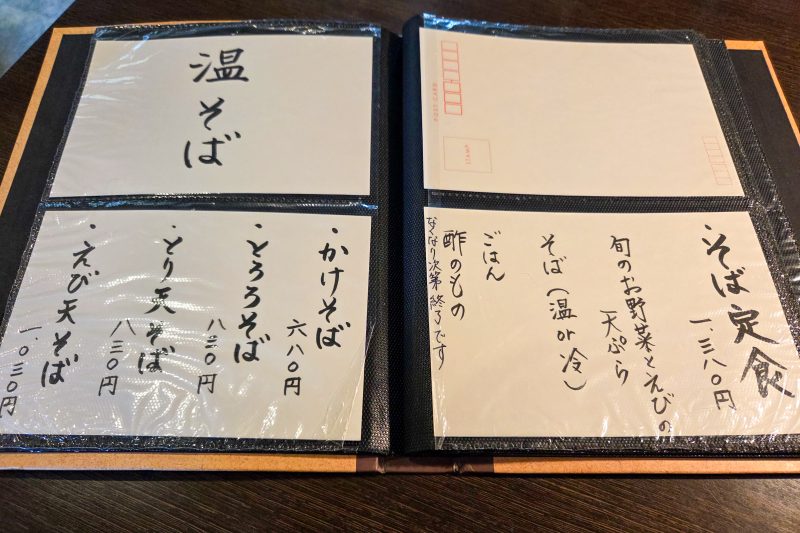 温そば
・かけそば
六八〇円
・とろろそば
八三〇円
・とり天そば
八三〇円
・えび天そば
一、〇三〇円
POST CARD
STAMP
・そば定食
一、三八〇円
旬のお野菜とえびの
天ぷら
そば(温or冷)
ごはん
酢のもの
なくなり次第終了です